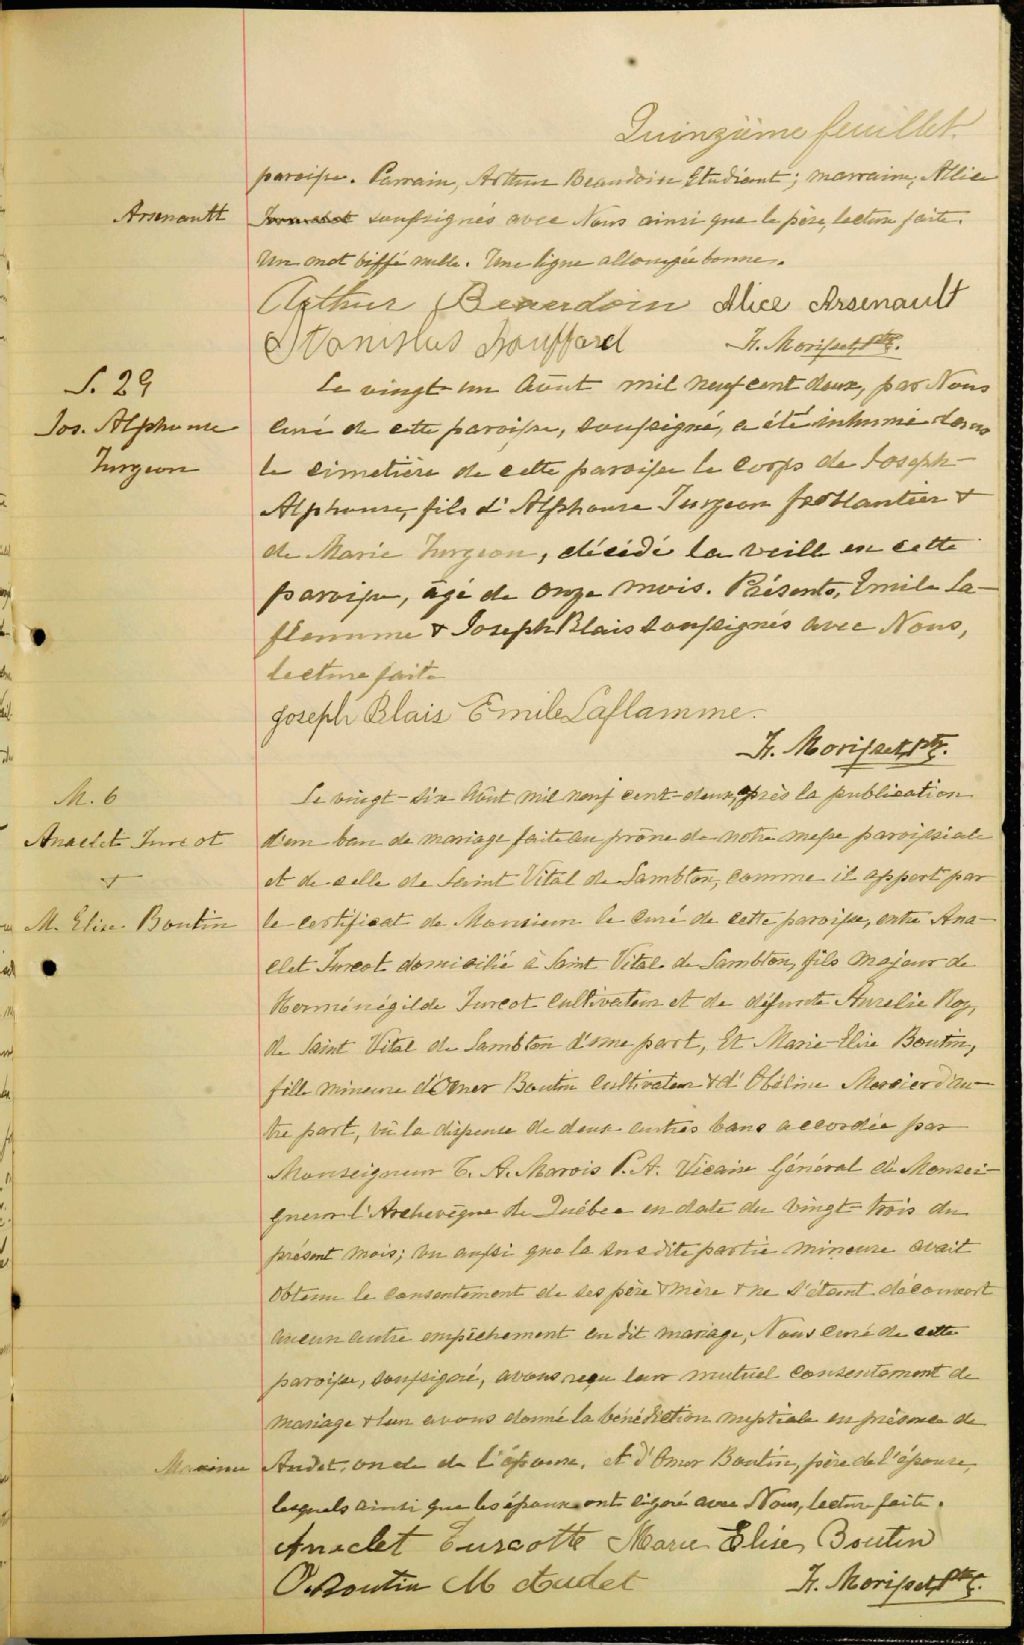 Quinzième feuillet.
paroisse. Parrain, Arthur Beaudoin Etudiant; marraine, Allice
Arsenautt
soussignés avec Nous ainsi que le père, lecture faite.
Un mot biffé nulle. Une ligne allongée bonne.
Arthur Beaudoin Alice Arsenault
Stanislas Gouffard F. Morisset, Ptre.
S. 29
Jos. Alphonse
Turgeon
Le vingt-un Août mil neuf cent deux, par Nous
curé de cette paroisse, soussigné, a été inhumé dans
le cimetière de cette paroisse le corps de Joseph-
Alphonse, fils d'Alphonse Turgeon ferblantier &
de Marie Turgeon, décédé la veille en cette
paroisse, âgé de onze mois. Présents, Emile La-
flamme & Joseph Blais soussignés avec Nous,
lecture faite
Joseph Blais Emile Laflamme.
F. Morisset, Ptre.
M. 6
Anaclet Turcot
&
M. Elise Boutin
Le vingt-six Août mil neuf cent-deux, après la publication
d'un ban de mariage faite au prône de notre messe paroissiale
et de celle de Saint Vital de Lambton, comme il appert par
le certificat de Monsieur le curé de cette paroisse, entre Ana-
clet Turcot domicilié à Saint Vital de Lambton, fils majeur de
Herménégilde Turcot cultivateur et de défunte Aurelie Roy,
de Saint Vital de Lambton d'une part, Et Marie-Elise Boutin,
fille mineure d'Omer Boutin cultivateur & d'Obéline Mercier d'au-
tre part, vû la dispense de deux autres bans accordée par
Monseigneur C. A. Marois P. A. Vicaire Général de Monsei-
gneur l'Archevêque de Québec en date du vingt-trois du
présent mois; vu aussi que la susdite partie mineure avait
obtenu le consentement de ses père & mère & ne s'étant découvert
aucun autre empêchement au dit mariage, Nous curé de cette
paroisse, soussigné, avons reçu leur mutuel consentement de
mariage & leur avons donné la bénédiction nuptiale en présence de
Maxime Audet, oncle de l'époux, et d'Omer Boutin, père de l'épouse,
lesquels ainsi que les époux ont signé avec Nous, lecture faite.
Anaclet Turcotte Marie Elise Boutin
O. Boutin M Audet F. Morisset, Ptre.